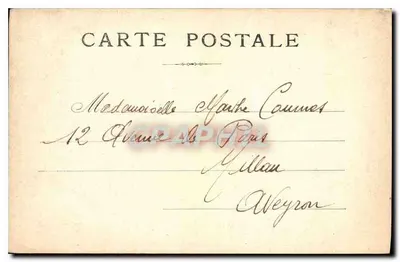 CARTE POSTALE
Mademoiselle Marthe
12 Avenue de Paris
Millau
Aveyron